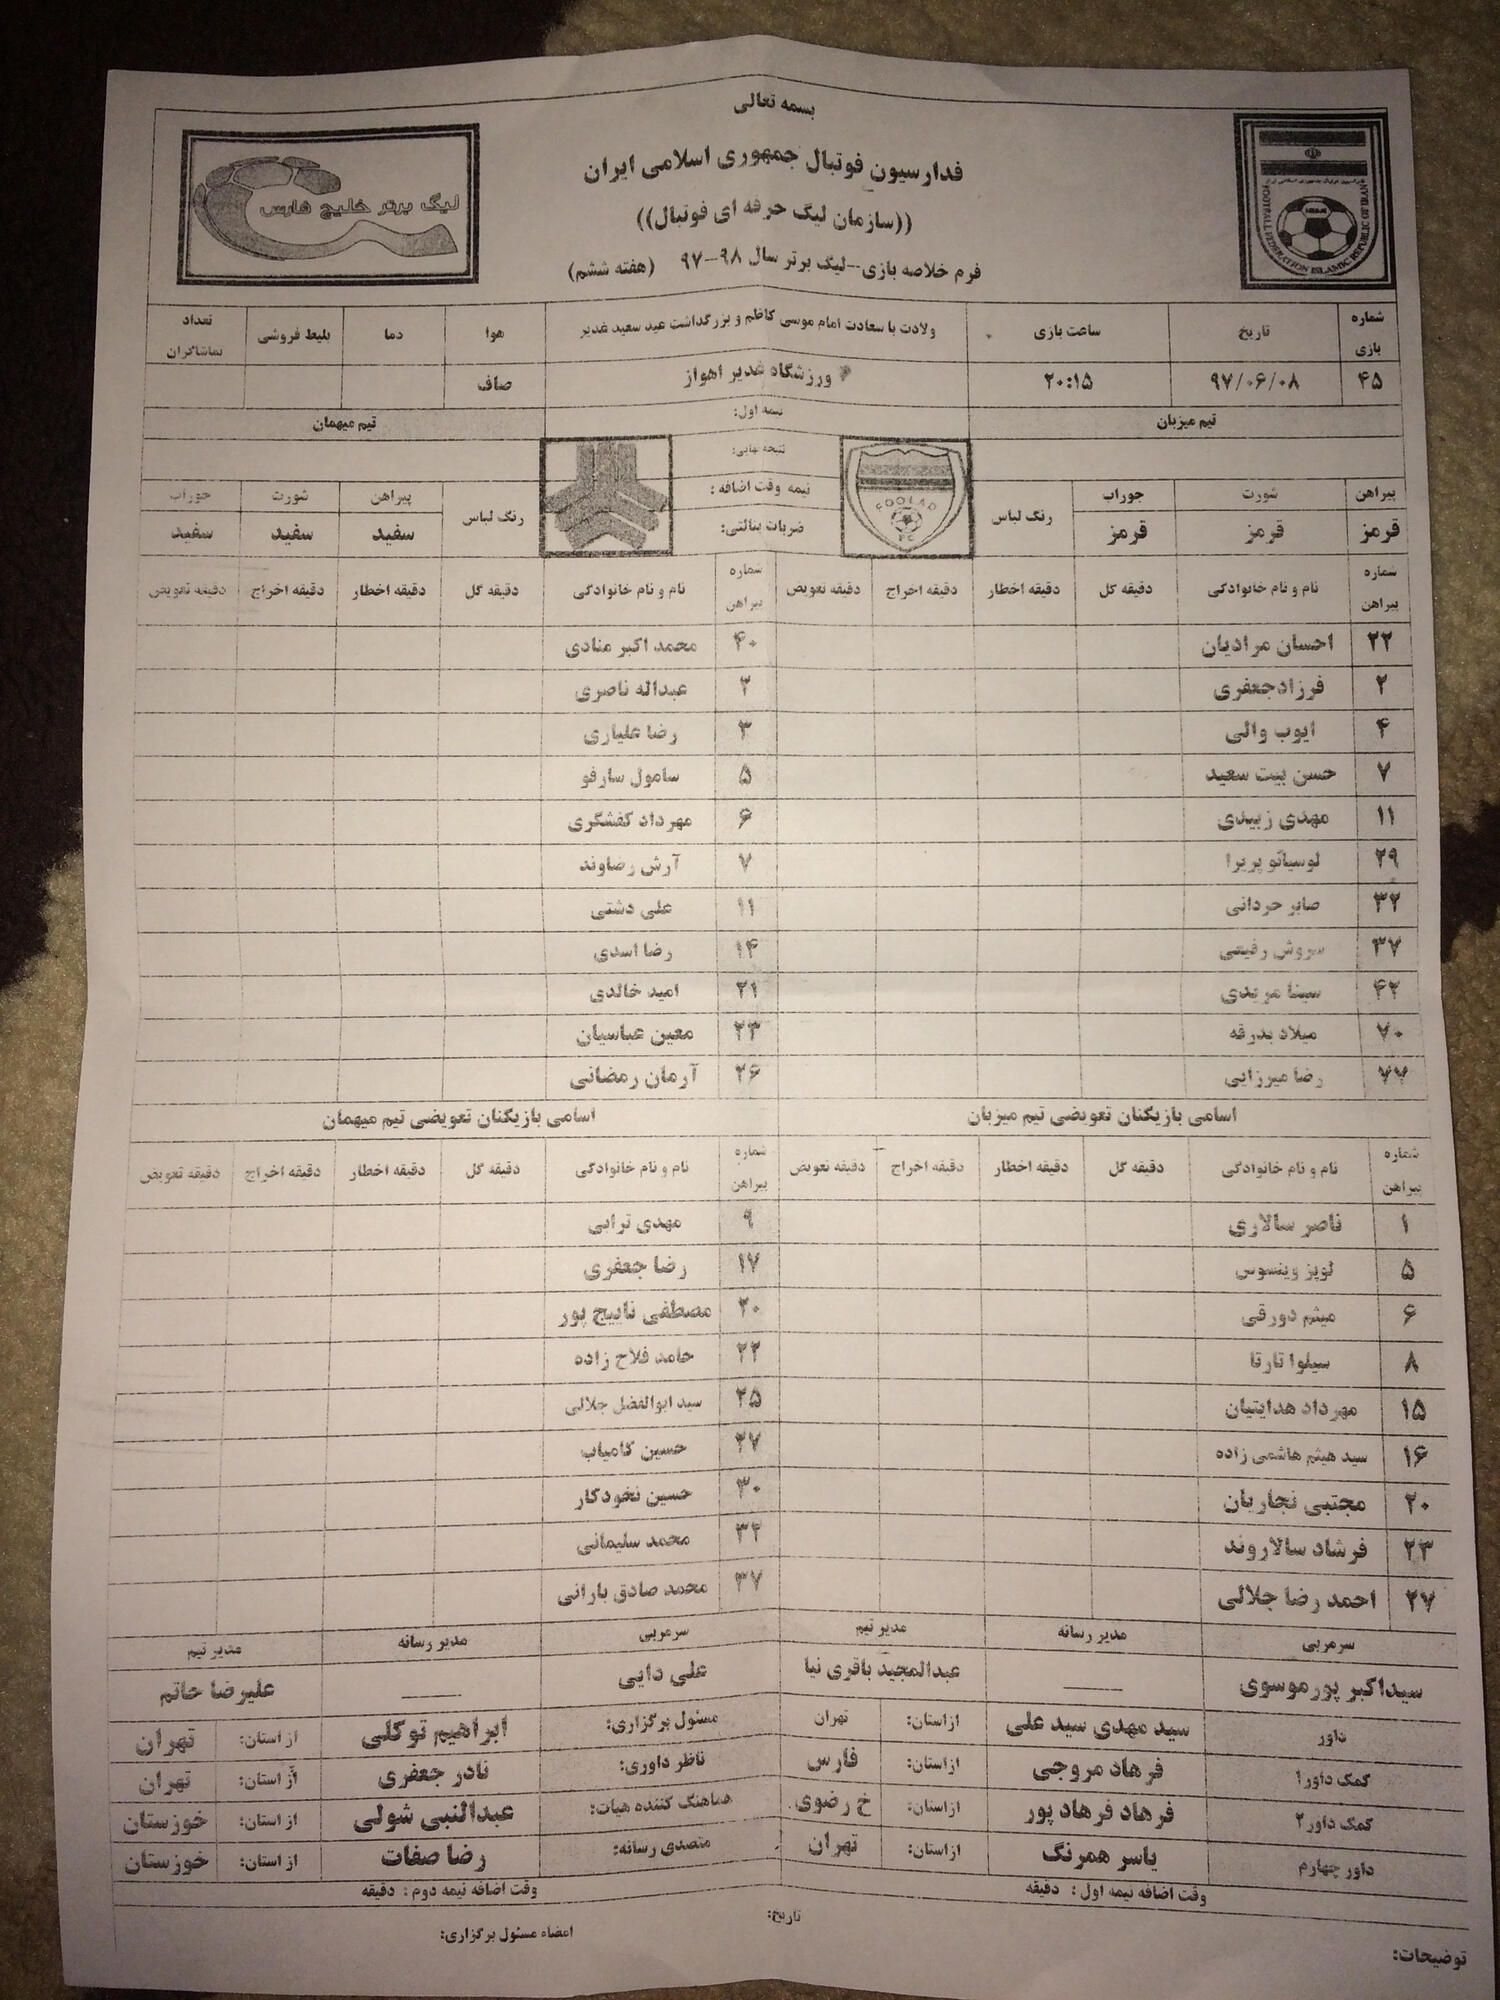 بسمه تعالی
فدارسیون فوتبال جمهوری اسلامی ایران
((سازمان لیگ حرفه ای فوتبال))
فرم خلاصه بازی--لیگ برتر سال ۹۸--۹۷ (هفته ششم)
لیگ برتر خلیج فارس
FOOTBALL FEDERATION ISLAMIC REPUBLIC OF IRAN
شماره بازی تاریخ ساعت بازی ولادت با سعادت امام موسی کاظم و بزرگداشت عید سعید غدیر هوا دما بلیط فروشی تعداد تماشاگران
۴۵ ۹۷/۰۶/۰۸ ۲۰:۱۵ ورزشگاه غدیر اهواز صاف
تیم میزبان نیمه اول: تیم میهمان
نتیجه نهایی:
FOOLAD FC
پیراهن شورت جوراب رنگ لباس نیمه وقت اضافه: رنگ لباس پیراهن شورت جوراب
قرمز قرمز قرمز ضربات پنالتی: سفید سفید سفید
شماره پیراهن نام و نام خانوادگی دقیقه گل دقیقه اخطار دقیقه اخراج دقیقه تعویض شماره پیراهن نام و نام خانوادگی دقیقه گل دقیقه اخطار دقیقه اخراج دقیقه تعویض
۲۲ احسان مرادیان ۴۰ محمد اکبر منادی
۲ فرزادجعفری ۲ عبداله ناصری
۴ ایوب والی ۳ رضا علیاری
۷ حسن بیت سعید ۵ سامول سارفو
۱۱ مهدی زبیدی ۶ مهرداد کفشگری
۲۹ لوسیانو پریرا ۷ آرش رضاوند
۳۲ صابر حردانی ۱۱ علی دشتی
۳۷ سروش رفیعی ۱۴ رضا اسدی
۴۲ سینا مریدی ۲۱ امید خالدی
۷۰ میلاد بدرقه ۲۳ معین عباسیان
۷۷ رضا میرزایی ۲۶ آرمان رمضانی
اسامی بازیکنان تعویضی تیم میزبان اسامی بازیکنان تعویضی تیم میهمان
شماره پیراهن نام و نام خانوادگی دقیقه گل دقیقه اخطار دقیقه اخراج دقیقه تعویض شماره پیراهن نام و نام خانوادگی دقیقه گل دقیقه اخطار دقیقه اخراج دقیقه تعویض
۱ ناصر سالاری ۹ مهدی ترابی
۵ لوپز وینسوس ۱۷ رضا جعفری
۶ میثم دورقی ۲۰ مصطفی ناییج پور
۸ سیلوا تارتا ۲۲ حامد فلاح زاده
۱۵ مهرداد هدایتیان ۲۵ سید ابوالفضل جلالی
۱۶ سید هیثم هاشمی زاده ۲۷ حسین کامیاب
۲۰ مجتبی نجاریان ۳۰ حسین نخودکار
۲۳ فرشاد سالاروند ۳۲ محمد سلیمانی
۲۷ احمد رضا جلالی ۳۷ محمد صادق بارانی
سرمربی مدیر رسانه مدیر تیم سرمربی مدیر رسانه مدیر تیم
سیداکبر پورموسوی عبدالمجید باقری نیا علی دایی علیرضا حاتم
داور سید مهدی سید علی ازاستان: تهران مسئول برگزاری: ابراهیم توکلی از استان: تهران
کمک داور۱ فرهاد مروجی ازاستان: فارس ناظر داوری: نادر جعفری از استان: تهران
کمک داور۲ فرهاد فرهاد پور ازاستان: خ رضوی هماهنگ کننده هیات: عبدالنبی شولی از استان: خوزستان
داور چهارم یاسر همرنگ ازاستان: تهران متصدی رسانه: رضا صفات از استان: خوزستان
وقت اضافه نیمه اول : دقیقه وقت اضافه نیمه دوم : دقیقه
تاریخ: امضاء مسئول برگزاری:
توضیحات: